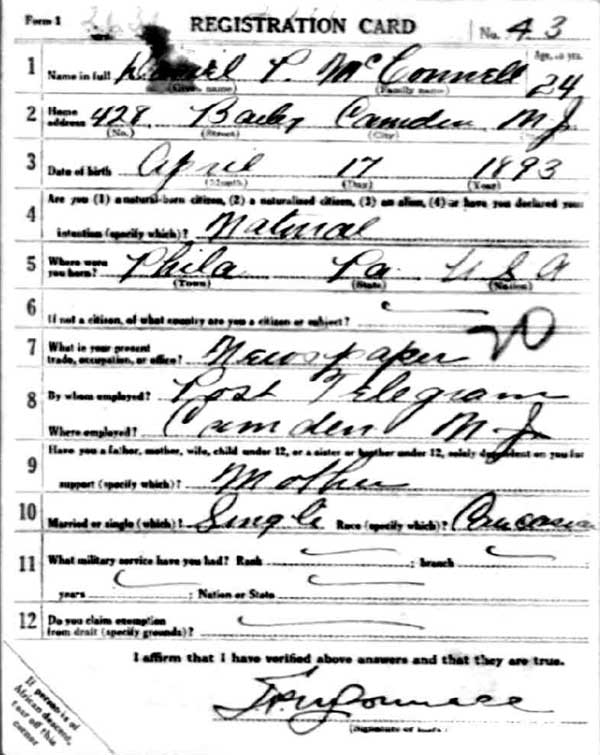 Form 1 REGISTRATION CARD No. 43
Age, in yrs.
1 Name in full P. McConnell 24
(Given name) (Family name)
2 Home address 428 Camden N J
(No.) (Street) (City)
3 Date of birth April 17 1893
(Month) (Day) (Year)
Are you (1) a natural-born citizen, (2) a naturalized citizen, (3) an alien, (4) or have you declared your
4 intention (specify which)? Natural
5 Where were you born? Phila Pa U S A
(Town) (State) (Nation)
6 If not a citizen, of what country are you a citizen or subject?
7 What is your present trade, occupation, or office? Newspaper
8 By whom employed? Post Telegram
Where employed? Camden N. J.
Have you a father, mother, wife, child under 12, or a sister or brother under 12, solely dependent on you for
9 support (specify which)? Mother
10 Married or single (which)? Single Race (specify which)? Caucasian
11 What military service have you had? Rank ; branch
years ; Nation or State
12 Do you claim exemption from draft (specify grounds)?
I affirm that I have verified above answers and that they are true.
If person is of
African descent,
tear off this
corner